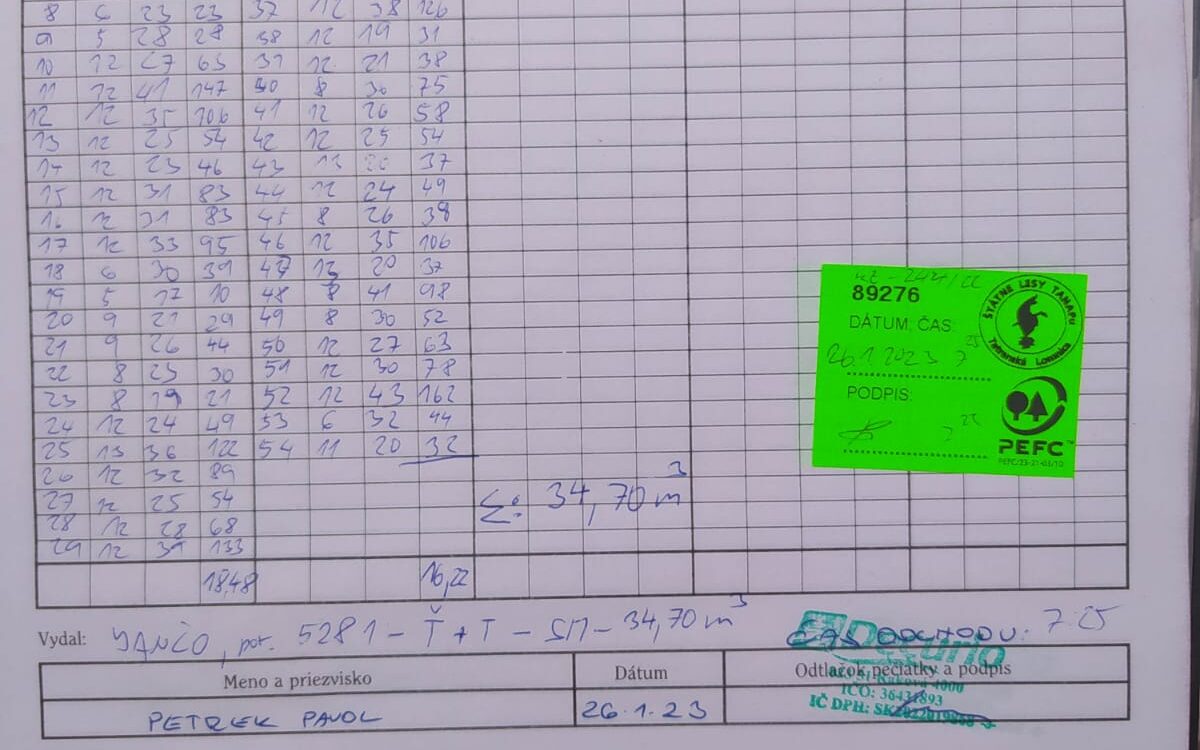 8 6 23 23 37 12 38 126
9 5 28 28 38 12 19 31
10 12 27 63 39 12 21 38
11 12 41 147 40 8 30 75
12 12 35 106 41 12 26 58
13 12 25 54 42 12 25 54
14 12 23 46 43 13 20 37
15 12 31 83 44 12 24 49
16 12 31 83 45 8 26 39
17 12 33 95 46 12 35 106
18 6 30 39 47 13 20 37
19 5 17 10 48 8 41 98
20 9 21 29 49 8 30 52
21 9 26 44 50 12 27 63
22 8 23 30 51 12 30 78
23 8 19 21 52 12 43 162
24 12 24 49 53 6 32 44
25 13 36 122 54 11 20 32
26 12 32 89
27 12 25 54
28 12 28 68
29 12 39 133
Σ: 34,70 m³
18,48 16,22
89276
DÁTUM, ČAS:
26.1.2023 7 25
PODPIS:
7 25
ŠTÁTNE LESY TANAPu
Tatranská Lomnica
PEFC™
PEFC/23-21-03/10
Vydal: JANČO, pot. 5281 - Ť + T - SM - 34,70 m³
ČAS ODCHODU: 7.25
Meno a priezvisko Dátum Odtlačok pečiatky a podpis
PETREK PAVOL 26.1.23
4000
IČO: 36431893
IČ DPH: